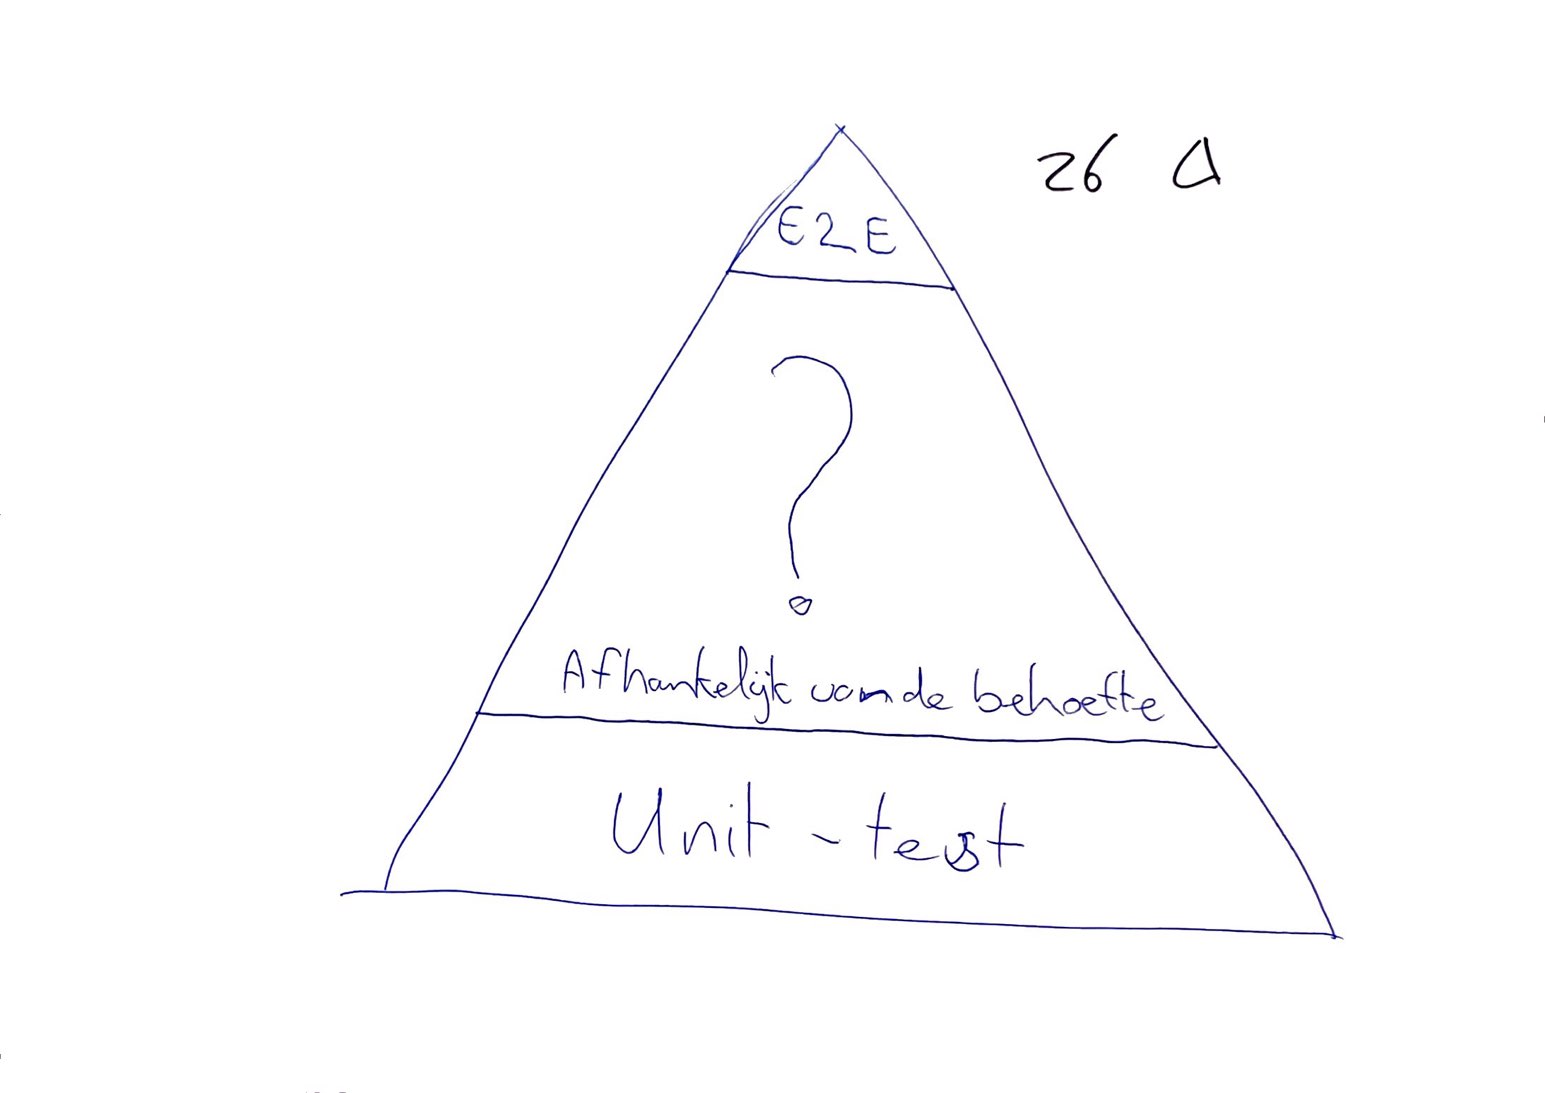 26 A
E2E
?
Afhankelijk van de behoefte
Unit-test